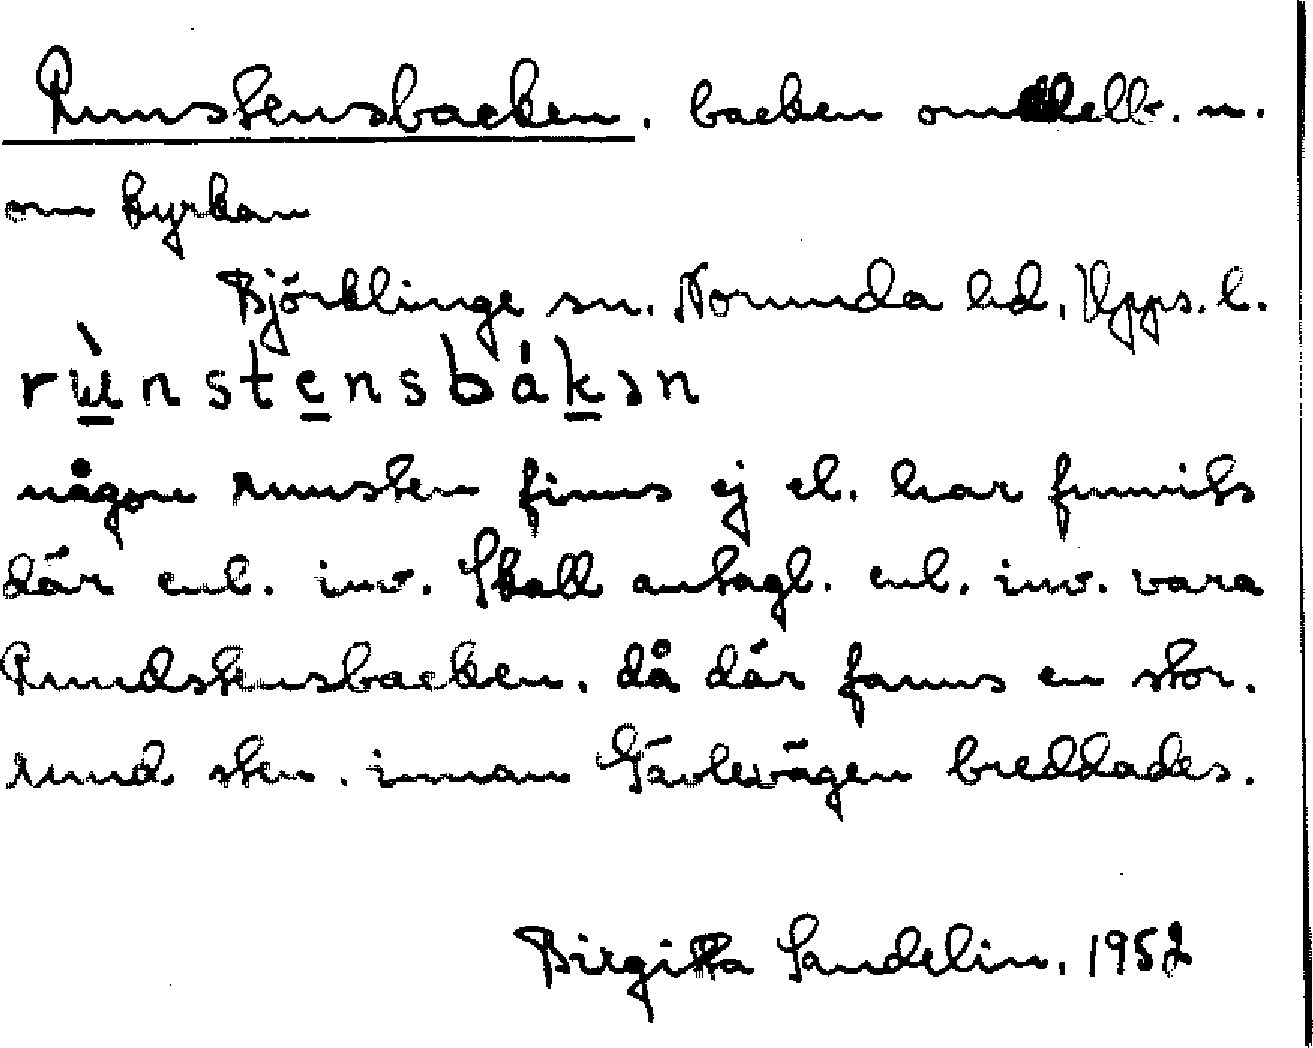 Runstensbacken. backen omedelb. n.
om kyrkan
Björklinge sn. Norunda hd. Upps. l.
rùnstensbákən
någon runsten finns ej el. har funnits
där enl. inv. Skall antagl. enl. inv. vara
Rundstensbacken. då där fanns en stor.
rund sten. innan Gävlevägen breddades.
Birgitta Sandelin. 1952